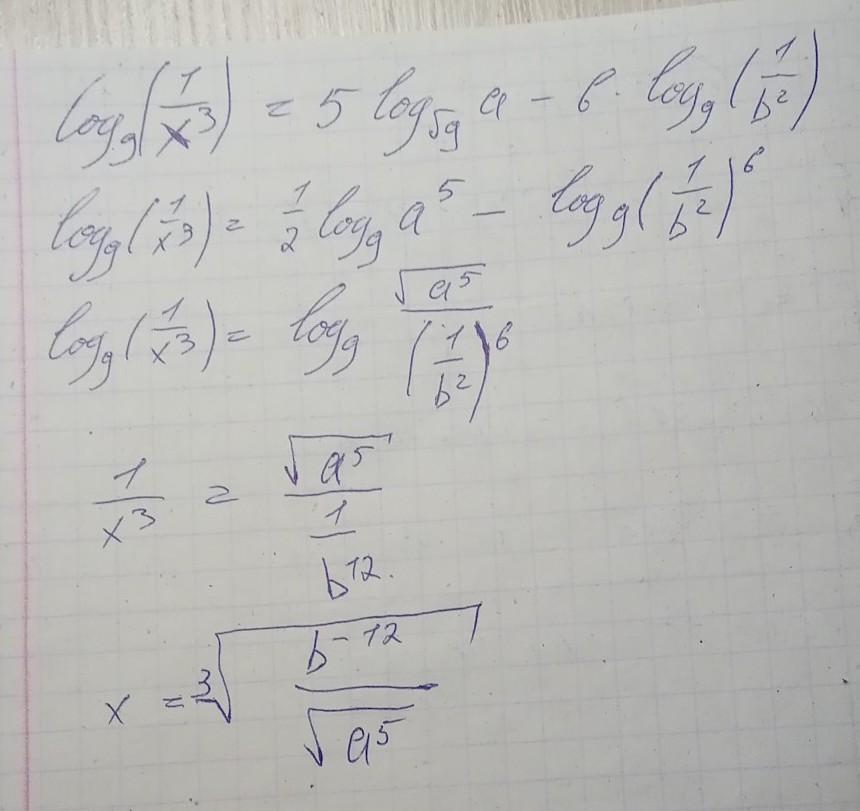 log₉(1/x³) = 5 log_√9 a - 6 · log₉(1/b²)
log₉(1/x³) = 1/2 log₉ a⁵ - log₉(1/b²)⁶
log₉(1/x³) = log₉ √a⁵/(1/b²)⁶
1/x³ = √a⁵/(1/b¹².)
x = ³√(b⁻¹²/√a⁵)